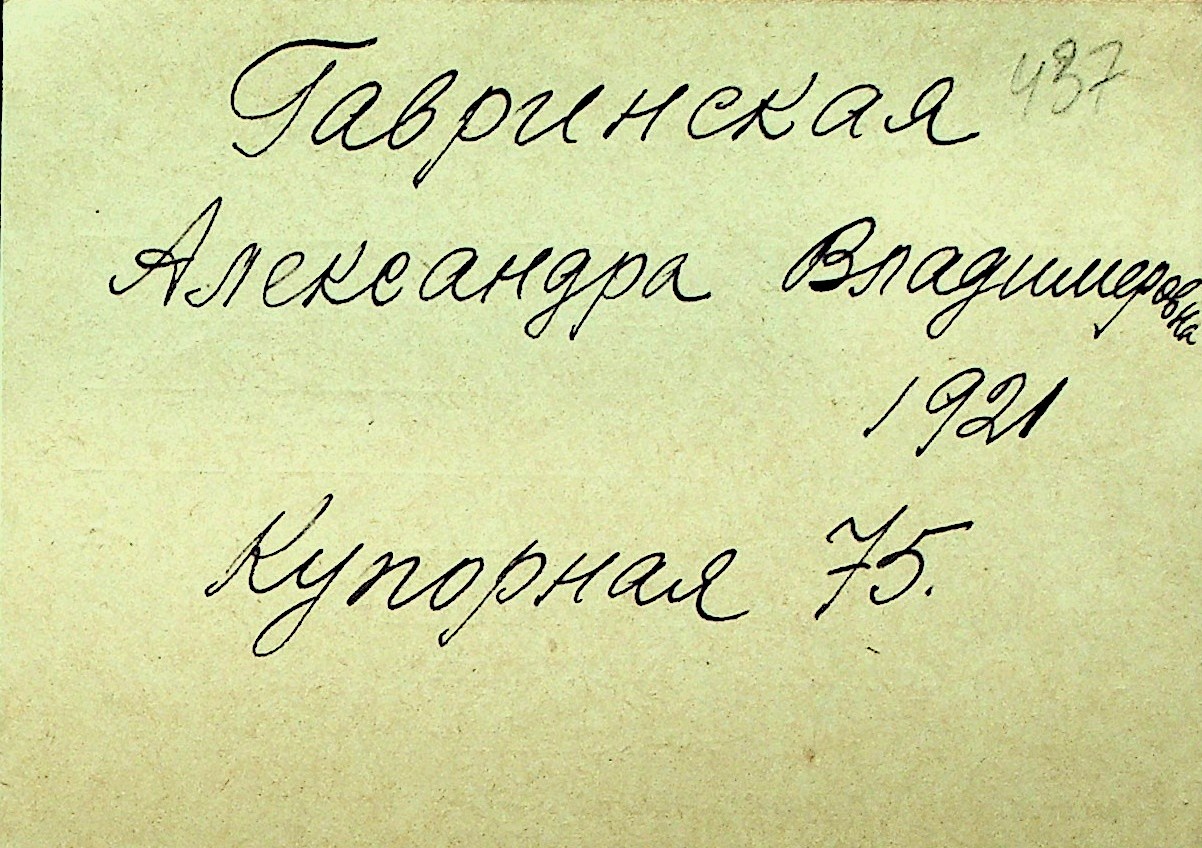 Гавринская 437
Александра Владимеровна
1921
Купорная 75.